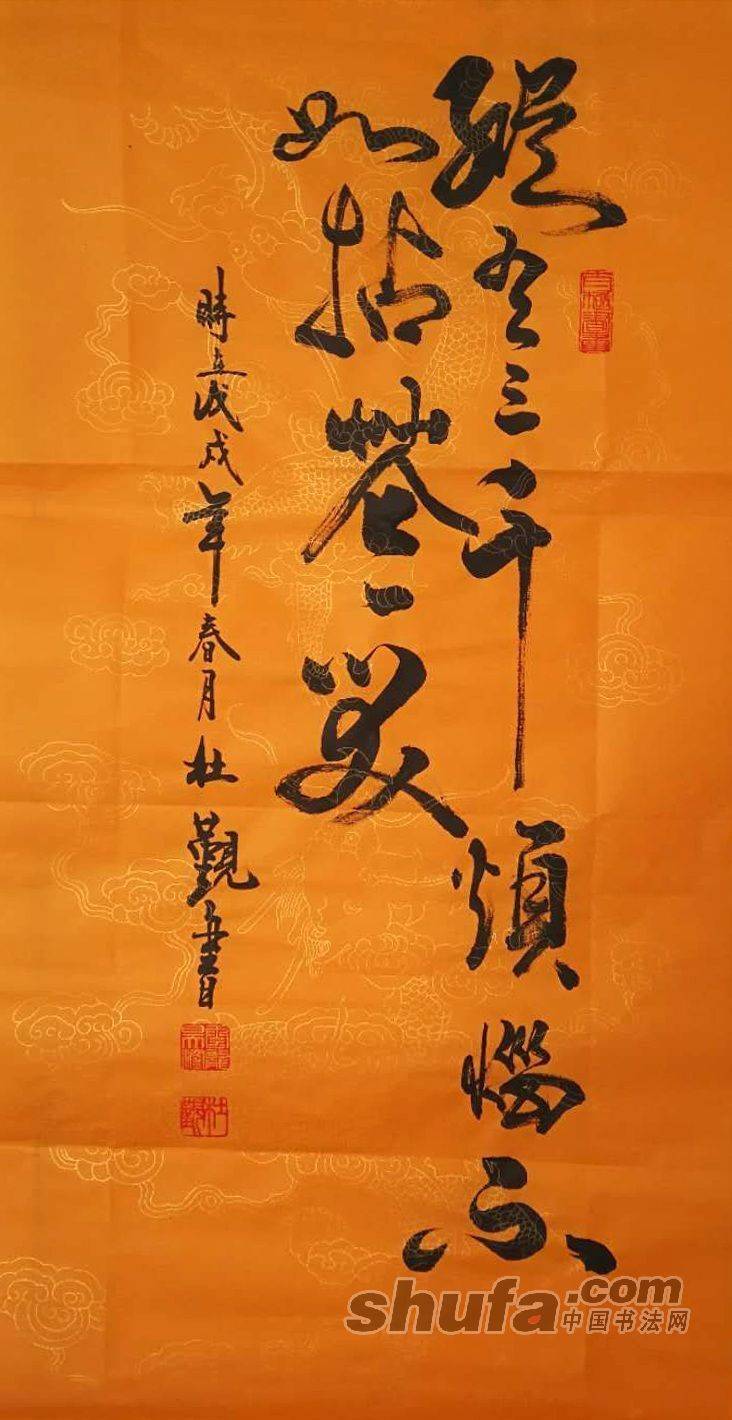 縱有三千煩惱不
如拈花一笑
時在戊戌年春月杜觀書
杜觀
shufa.com
中国书法网